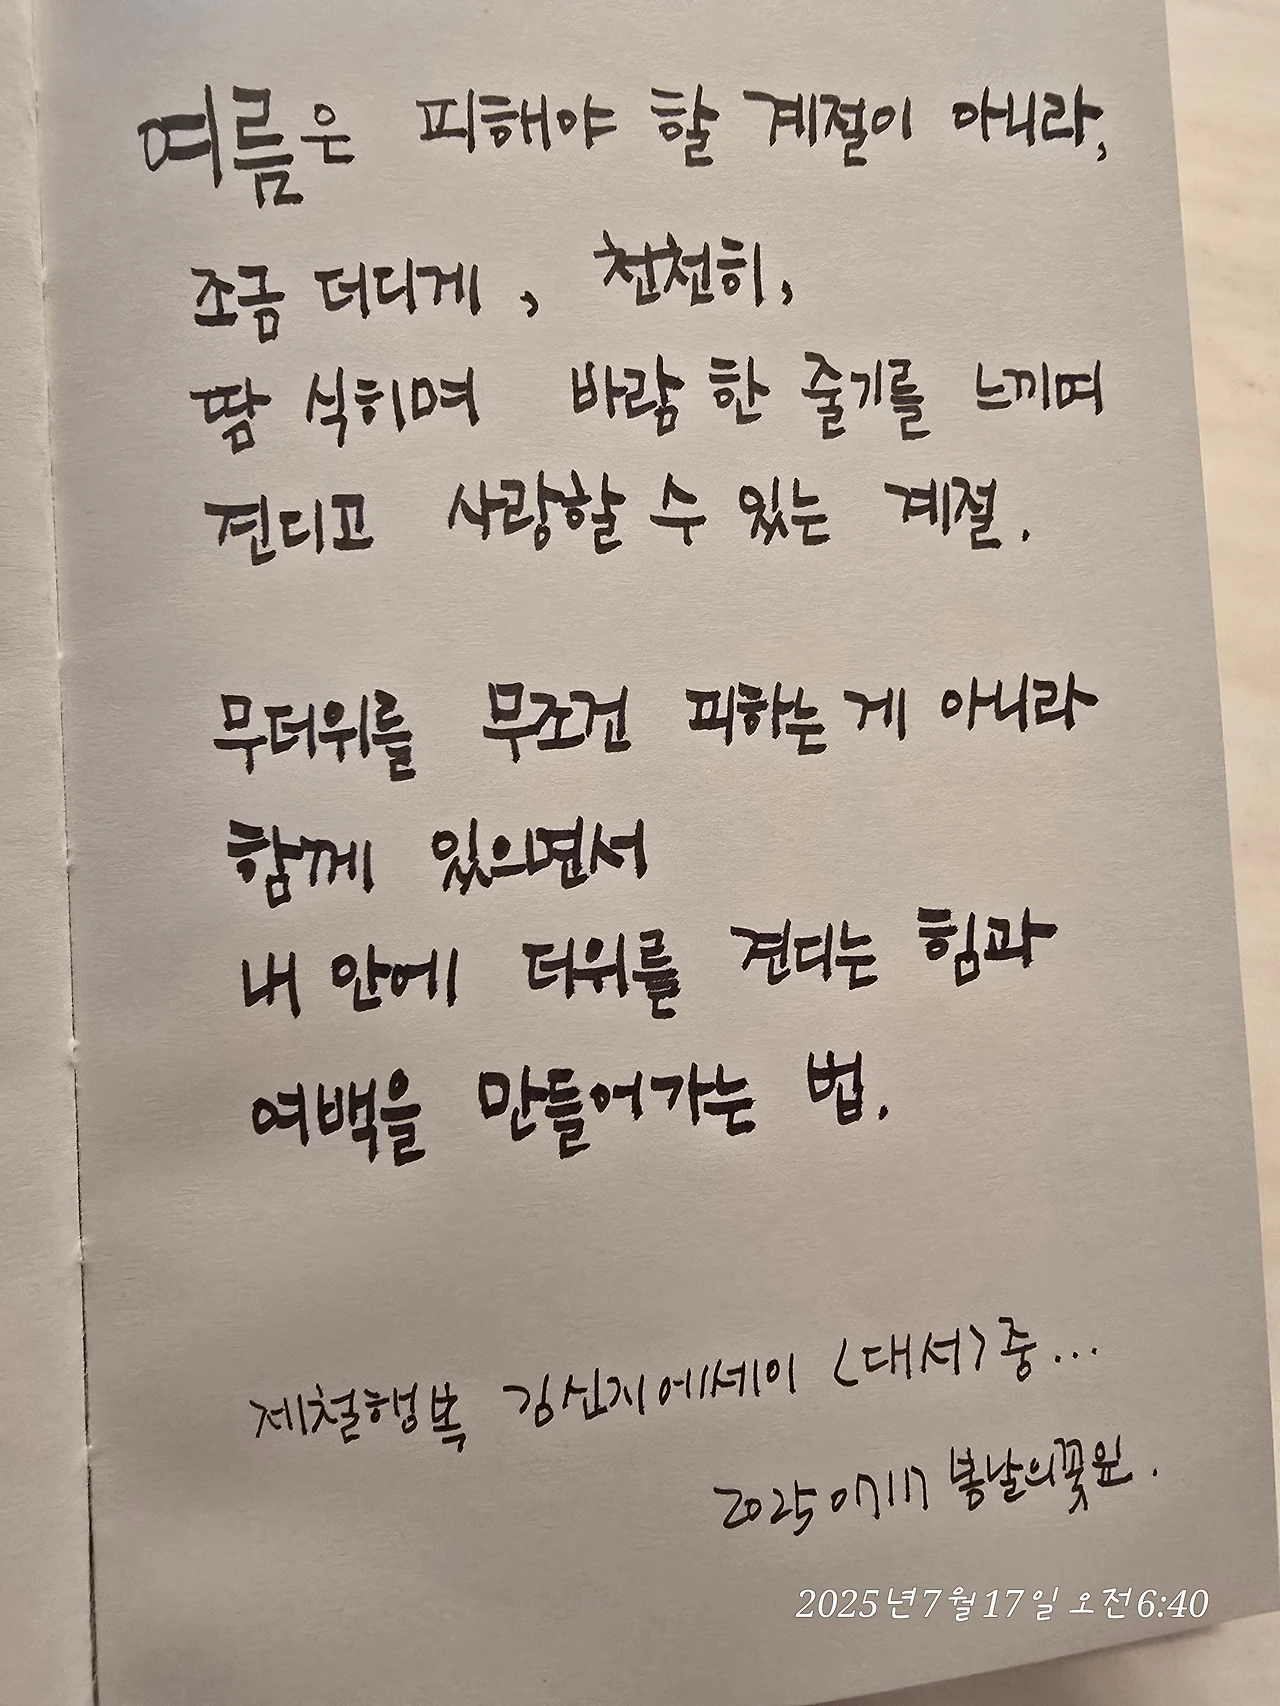 여름은 피해야 할 계절이 아니라,
조금 더디게, 천천히,
땀 식히며 바람 한 줄기를 느끼며
견디고 사랑할 수 있는 계절.
무더위를 무조건 피하는 게 아니라
함께 있으면서
내 안에 더위를 견디는 힘과
여백을 만들어가는 법.
제철행복 김신지에세이 <대서> 중...
20250717 봄날의꽃윤.
2025년 7월 17일 오전 6:40